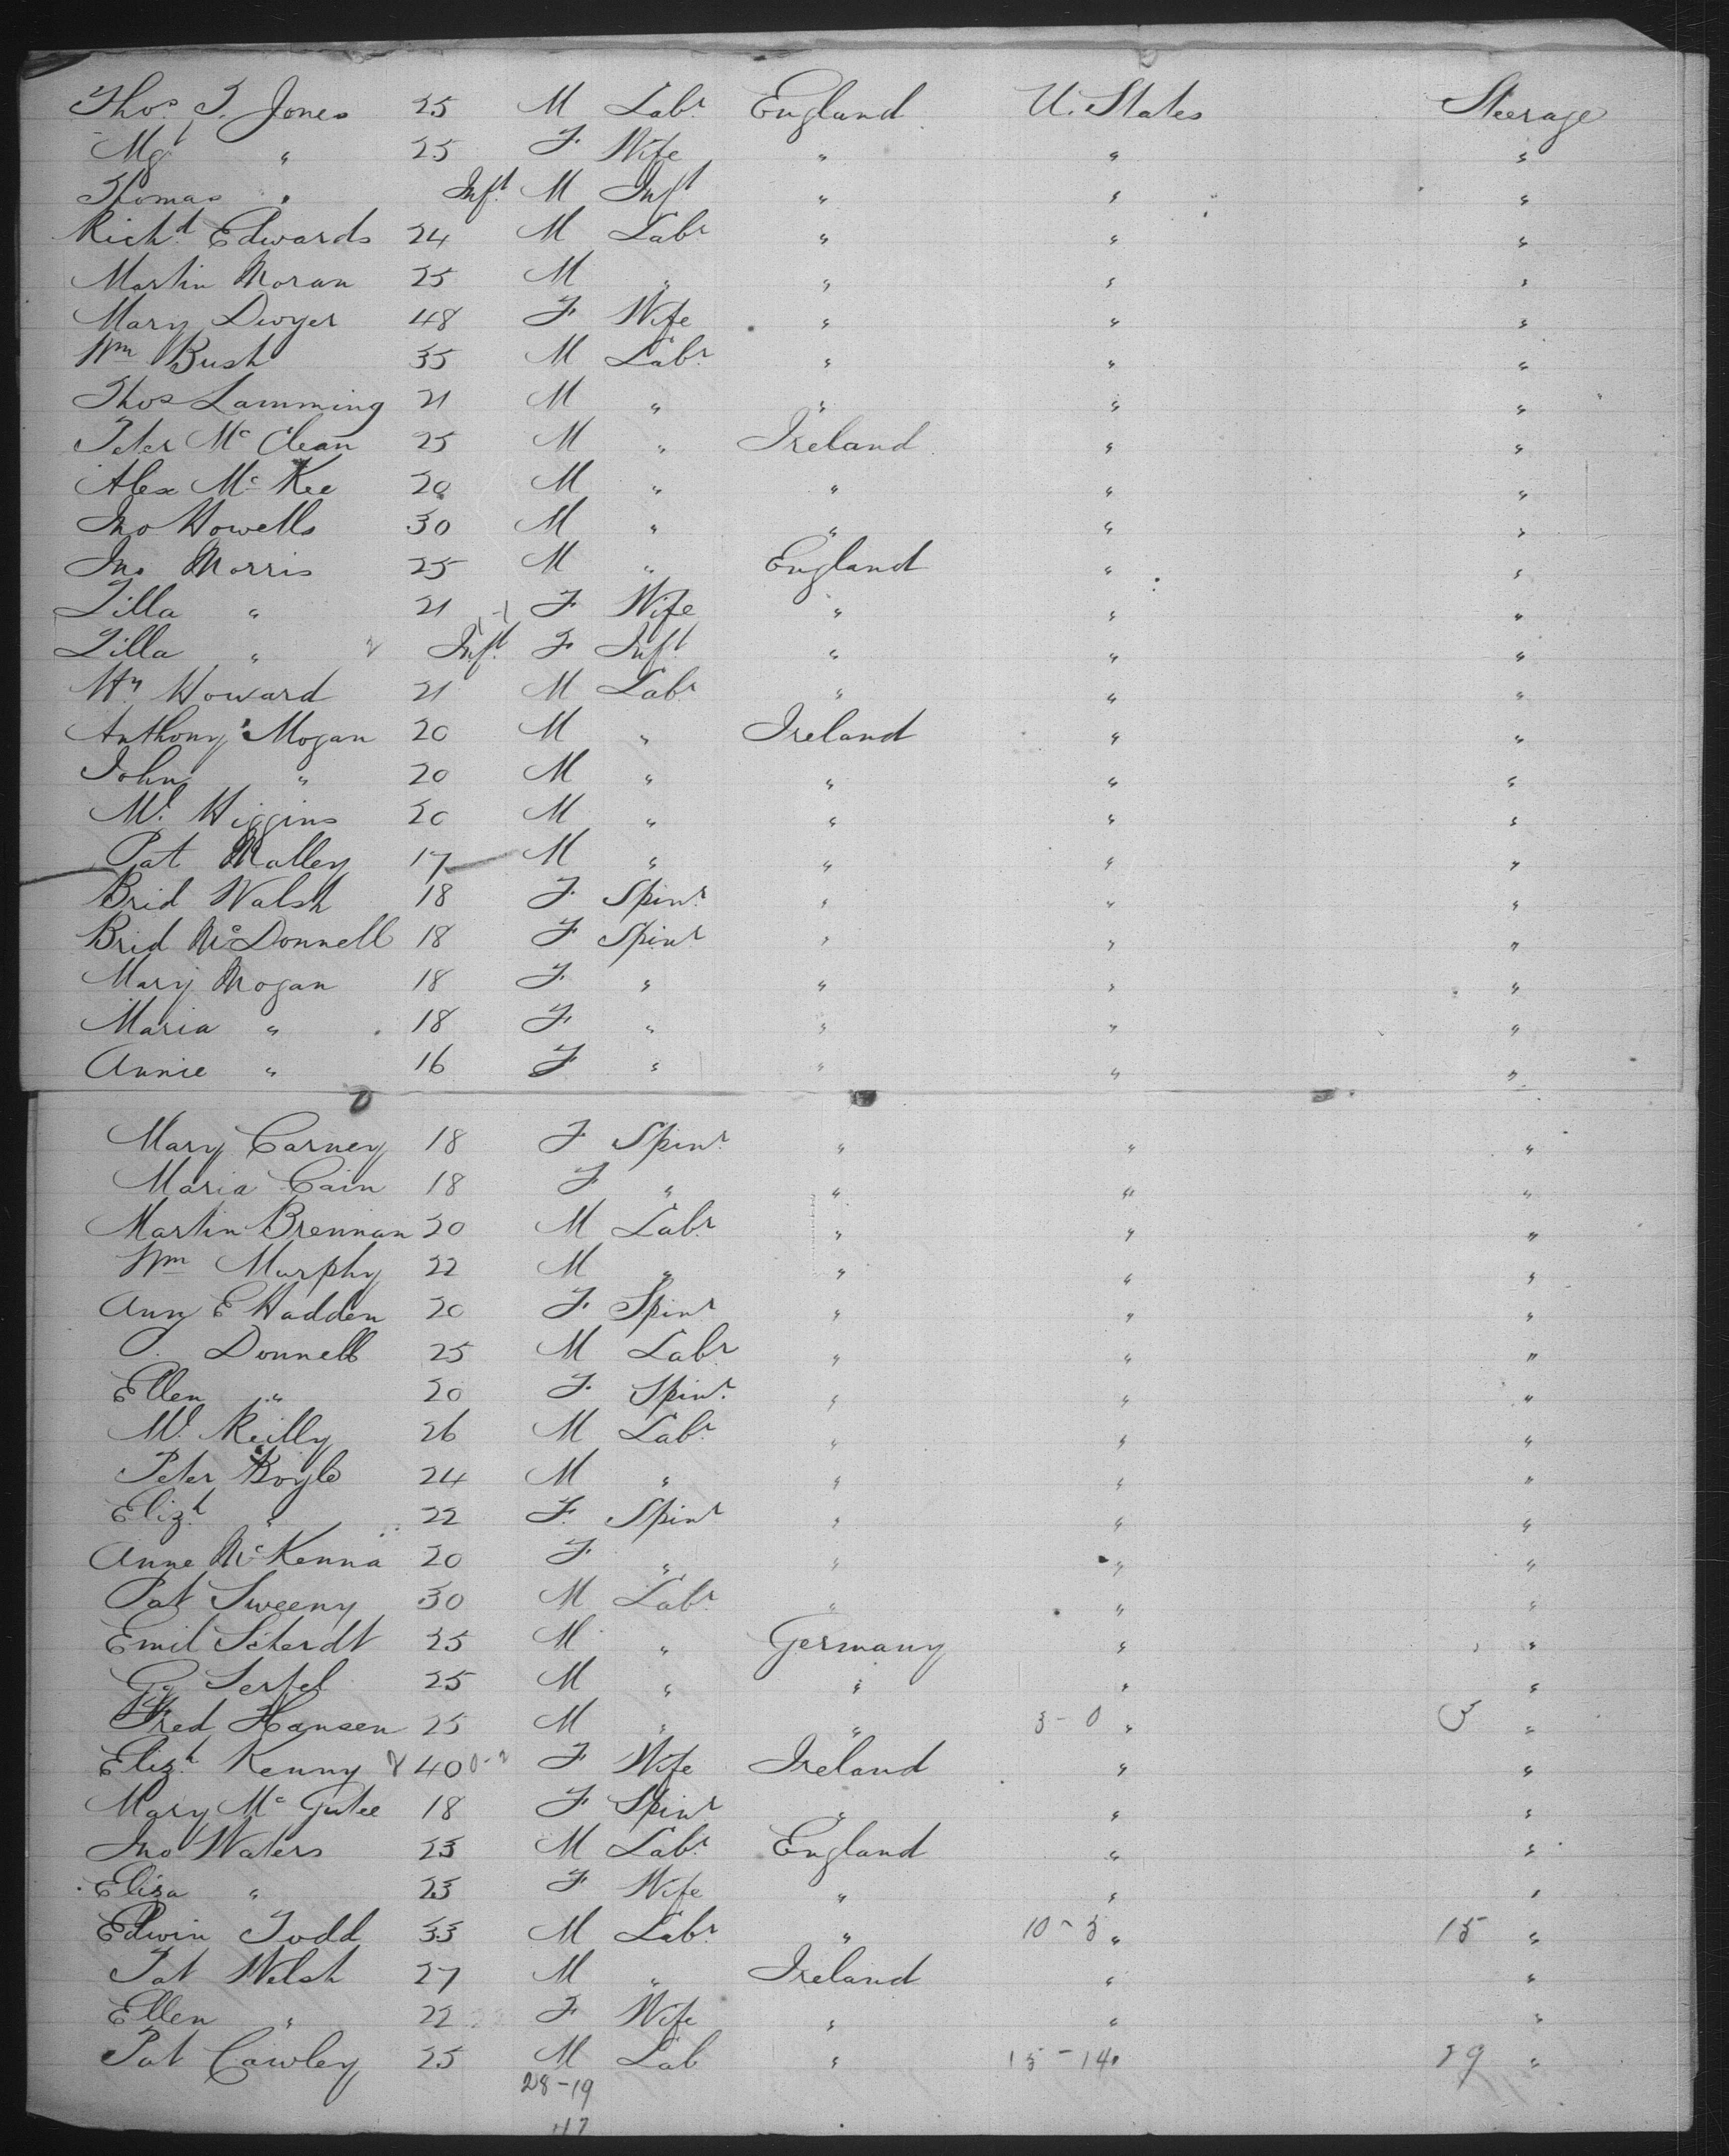 Thos. T. Jones 25 M Labr. England U. States Steerage
Mgt " 25 F Wife " " "
Thomas " Inft. M Inft " " "
Richd. Edwards 24 M Labr " " "
Martin Moran 25 M " " " "
Mary Dwyer 48 F Wife " " "
Wm Bush 35 M Labr. " " "
Thos Lamming 21 M " " " "
Peter Mc Clean 25 M " Ireland " "
Alex Mc Kee 20 M " " " "
Jno Howells 30 M " " " "
Jno Morris 25 M " England " "
Lilla " 21 F Wife " " "
Lilla " Inft. F Inft. " " "
Hy Howard 21 M Labr. " " "
Anthony Mogan 20 M " Ireland " "
John " 20 M " " " "
Ml. Higgins 20 M " " " "
Pat Malley 17 M " " " "
Brid Walsh 18 F Spinr. " " "
Brid McDonnell 18 F Spinr " " "
Mary Mogan 18 F " " " "
Maria " 18 F " " " "
Annie " 16 F " " " "
Mary Carney 18 F Spinr. " " "
Maria Cain 18 F " " " "
Martin Brennan 20 M Labr. " " "
Wm Murphy 22 M " " " "
Ann E Hadden 20 F Spinr " " "
Donnell 25 M Labr. " " "
Ellen " 20 F Spinr. " " "
Ml. Reilly 26 M Labr. " " "
Peter Boyle 24 M " " " "
Elizh. " 22 F. Spinr " " "
Anne McKenna 20 F " " " "
Pat Sweeny 30 M Labr. " " "
Emil Scherdt 25 M " Germany " "
25 M " " " "
Fred Hansen 25 M " " 3-0 " 3 "
Elizh. Kenny 40 F Wife Ireland " "
Mary Mc Gutee 18 F Spinr " " "
Jno Waters 23 M Labr. England " "
Eliza " 23 F Wife " " "
Edwin Todd 33 M Labr. " 10-5 " 15 "
Pat Welsh 27 M " Ireland " "
Ellen " 22 F Wife " " "
Pat Cawley 25 M Lab " 15-14 " 29 "
28-19
47